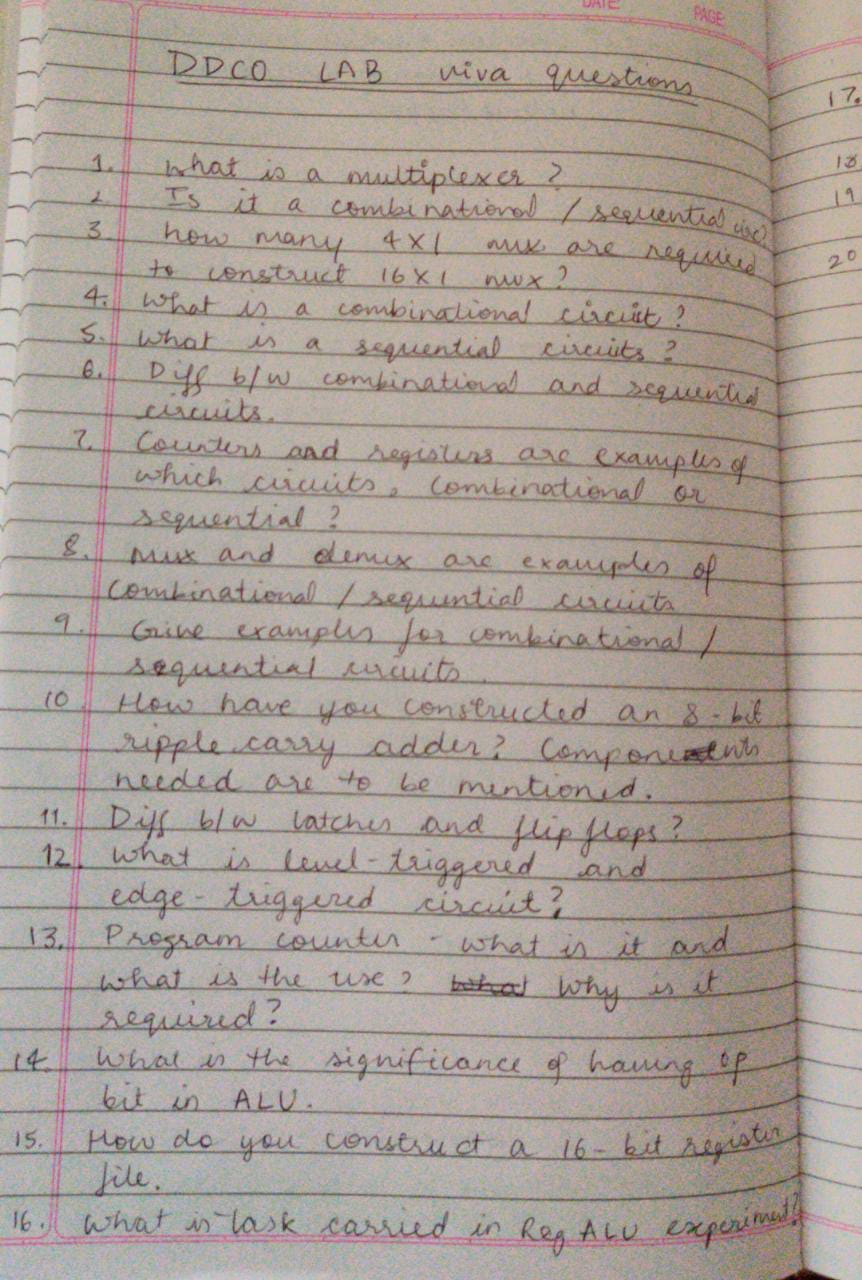 DATE:
PAGE:
DDCO LAB viva questions
1. What is a multiplexer ?
2 Is it a combinational / sequential circ?
3. how many 4X1 mux are required
to construct 16X1 mux?
4. What is a combinational circuit ?
5. What is a sequential circuits ?
6. Diff b/w combinational and sequential
circuits.
7. Counters and registers are examples of
which circuits, combinational or
sequential ?
8. mux and demux are examples of
combinational / sequential circuits
9. Give examples for combinational /
sequential circuits.
10 How have you constructed an 8-bit
ripple carry adder? Components
needed are to be mentioned.
11. Diff b/w latches and flip flops ?
12. What is level-triggered and
edge-triggered circuit?
13. Program counter - what is it and
what is the use? Why is it
required?
14. What is the significance of having op
bit in ALU.
15. How do you construct a 16-bit register
file.
16. What is task carried in Reg ALU experiment?
17.
18
19
20